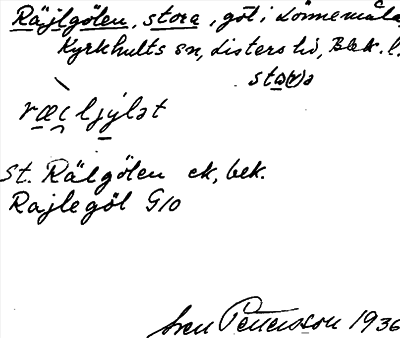 Räjlgölen, stora, göl i Lönnemåla,
Kyrkhults sn, Listers hd, Blek. l.
sta(r)a
ræi̯ljýlət
St. Rälgölen ek, bek.
Rajlegöl G10
Sven Petersson 1936